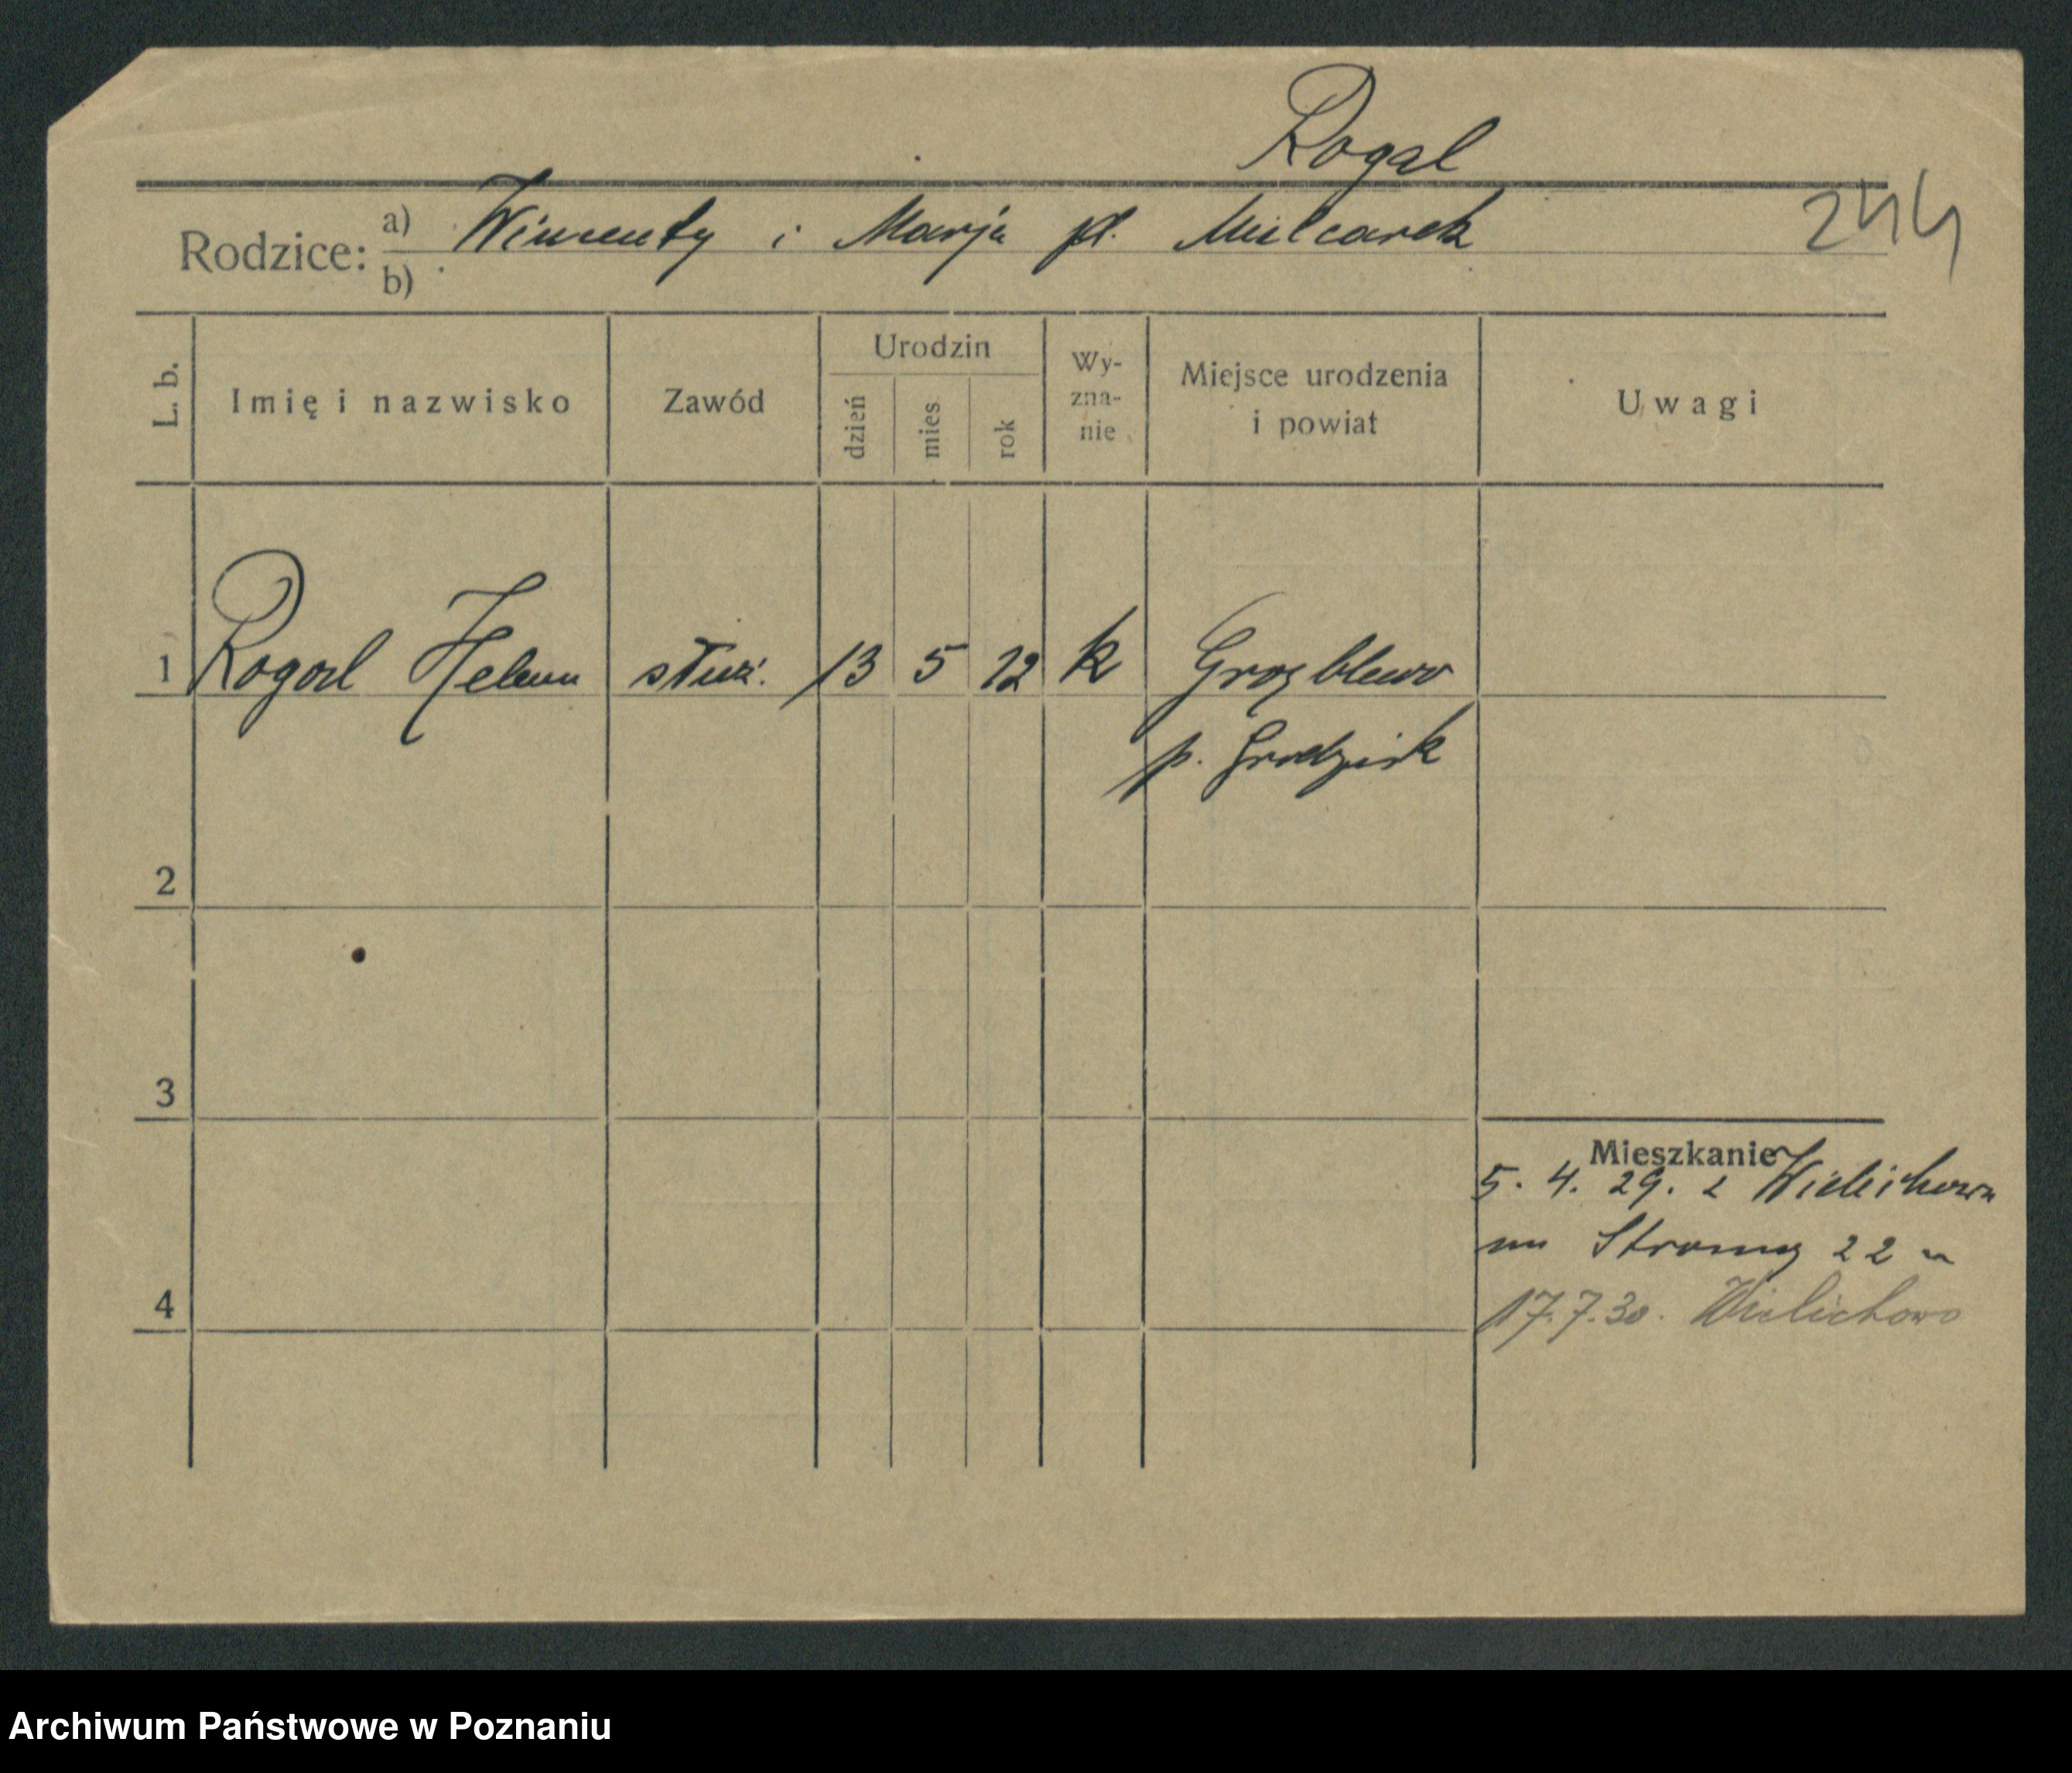 Rogal
Rodzice: a) Wincenty i Marja pł. Mulcarek
244
b)
L. b.
Imię i nazwisko
Zawód
Urodzin
dzień
mies.
rok
Wy-
zna-
nie
Miejsce urodzenia
i powiat
Uwagi
1 Rogal Helena służ. 13 5 12 k Grąblewo
p. Grodzisk
2
3
4
Mieszkanie
5. 4. 29. z Wielichowa
na Stromą 22
17.7.30. Wielichowo
Archiwum Państwowe w Poznaniu